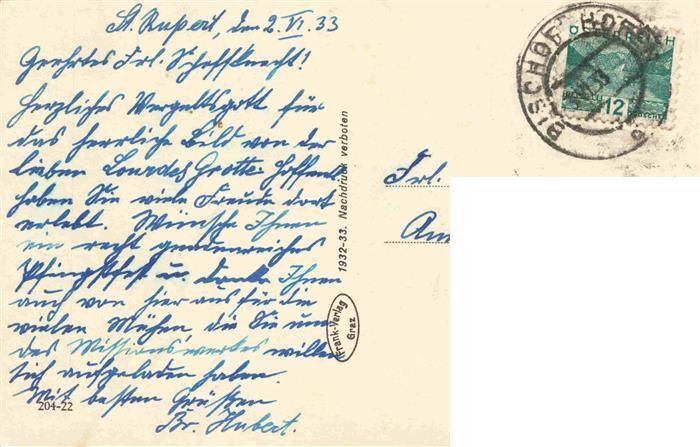 St. Rupert, den 2. VI. 33
Geehrtes Frl. Schoffknecht!
Herzliches Vergeltsgott für
das herrliche Bild von der
lieben Lourdes Grotte. Hoffentl.
haben Sie viele Freude dort
erlebt. Wünsche Ihnen
ein recht gnadenreiches
Pfingstfest u. danke Ihnen
auch von hier aus für die
vielen Mühen die Sie um
des Missionswerkes willen
sich aufgeladen haben.
Mit besten Grüßen
Br. Hubert.
204-22
1932-33. Nachdruck verboten
Frank-Verlag
Graz
BISCHOFSHOFEN
12
Frl.